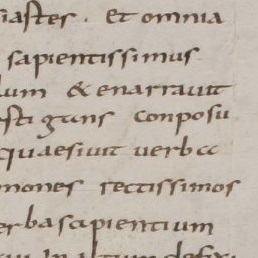 iastes. et omnia
sapientissimus
lum & enarrauit
sti gans composu
quaesiuit uerba
mones rectissimos
erba sapientium
in altum defixi